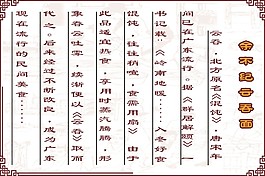 余不纪云吞面
云吞，北方原名《混饨》，唐宋年
间已在广东流行。据《群居解颐》一
书记载：《岭南地暖……入冬好食
馄饨，往往稍暄，食需用扇》由于
此品适宜热食，享用时蒸汽腾腾，形
象吞云吐雾，续渐便以《云吞》取而
代之。后来经过不断改良，成为广东
现在流行的民间美食……